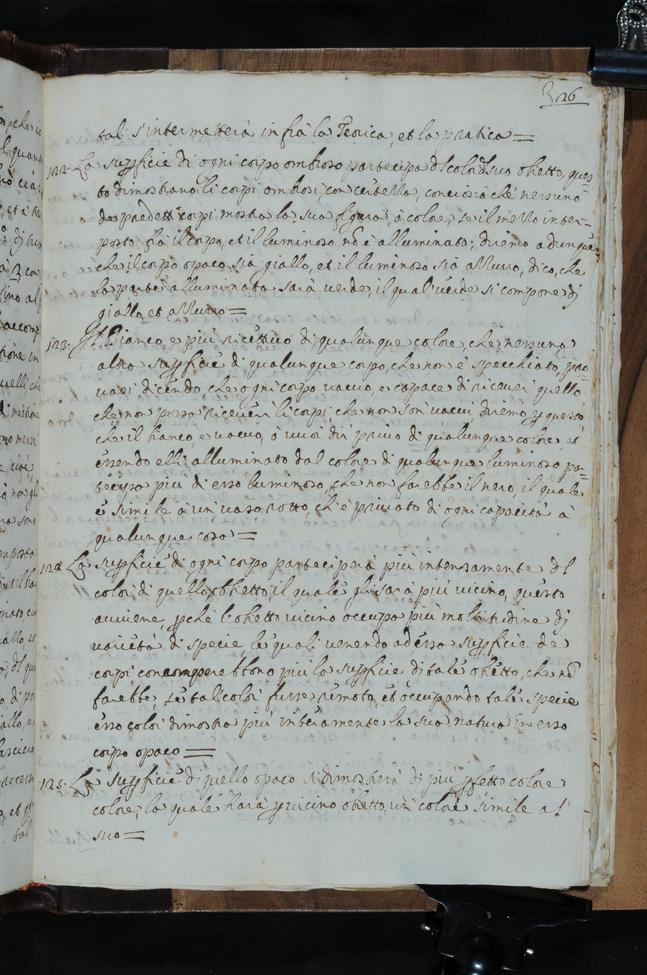 326
tal s'intermetterà in frà la Teorica, et la pratica =
122. La supficie di ogni corpo ombroso partecipa dl colo dl suo obetto, ques-
to dimostrano li corpi ombrosi con certezza, conciosia che nessuno
de predetti corpi mostra la sua figura, ò colore, se il mezzo inter-
posto frà il corpo, et il luminoso nō è alluminato; diremo adunque
che il corpo opaco sia giallo, et il luminoso sia azzurro, dico, che
la parte alluminata sarà verde, il qual verde si compone di
giallo, et azzurro =
123. Il Bianco, e più ricettivo di qualunque colore che nessuna
altra supficie di qualunque corpo, che non è specchiato, pro-
vasi dicendo, che ogni corpo vacuo, e capace di ricever quello
che non posso ricever li corpi, che non son vacui diremo p questo
che il bianco, e vacuo, ò vuoi dir privo di qualunque colore, et
essendo elli alluminato dal colore di qualunque luminoso pa-
tecipa più di esso luminoso, che non farebbe il nero, il quale
è simile à un vaso rotto, ch' è privato di ogni capacità à
qualunque cosa =
124. La supficie di ogni corpo parteciperà più intensamente dl
color di quello obbetto, il quale gli sarà più vicino, questo
aviene, pchè l'obetto vicino occupa più moltitudine di
varietà di specie, le quali venendo ad essa supficie de
corpi corromperebbono più la supficie di tale obetto, che nō
farebbe, se tal color fusse remoto, et occupando tale specie
esso color dimostra più interamente la sua natura in esso
corpo opaco =
125. La supficie di quello opaco si dimostrerà di più pfetto colore
colore, la quale harà p vicino obetto, un colore simile al
suo =